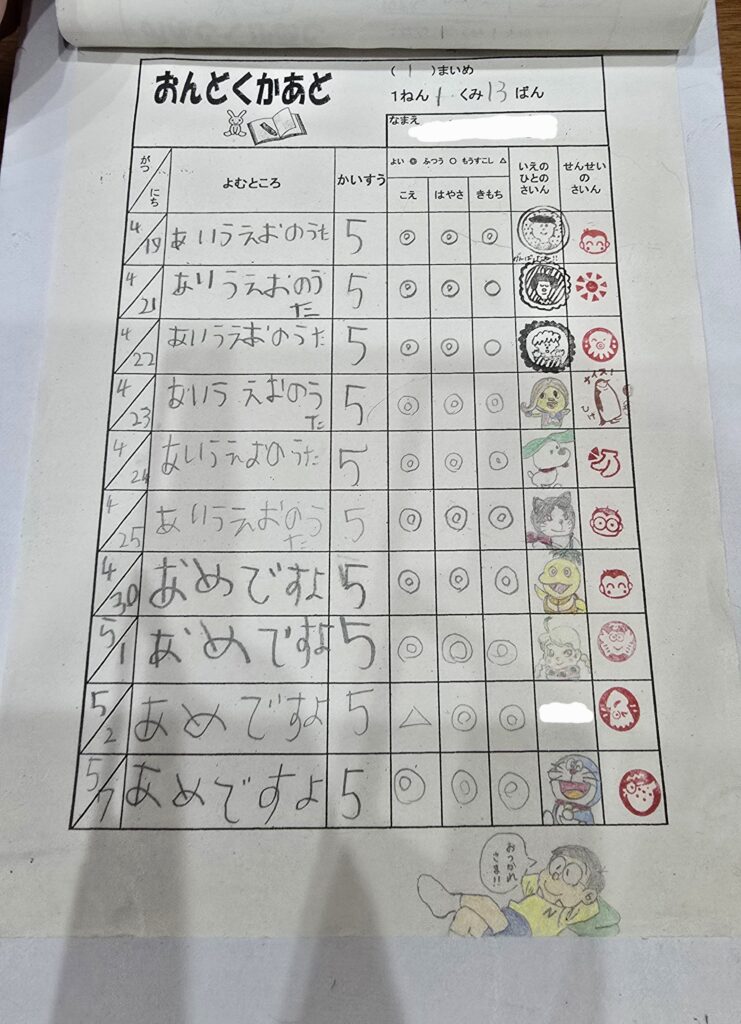 おんどくかあど
( 1 )まいめ
1ねん 1 くみ 13 ばん
なまえ
がつ にち
よむところ
かいすう
よい ◎ ふつう ○ もうすこし △
こえ はやさ きもち
いえの
ひとの
さいん
せんせい
の
さいん
4/18 あいうえおのうた 5 ◎ ◎ ◎
がんばったね!!
4/21 あいうえおのう
た 5 ◎ ◎ ○
4/22 あいうえおのうた 5 ◎ ◎ ○
4/23 あいうえおのう
た 5 ◎ ◎ ◎
ナイス!
4/24 あいうえおのうた 5 ◎ ◎ ◎
4/25 あいうえおのう
た 5 ◎ ◎ ◎
4/30 あめですよ 5 ◎ ◎ ◎
5/1 あめですよ 5 ◎ ◎ ◎
5/2 あめですよ 5 △ ◎ ◎
5/7 あめですよ 5 ◎ ◎ ◎
おつかれ
さま!!